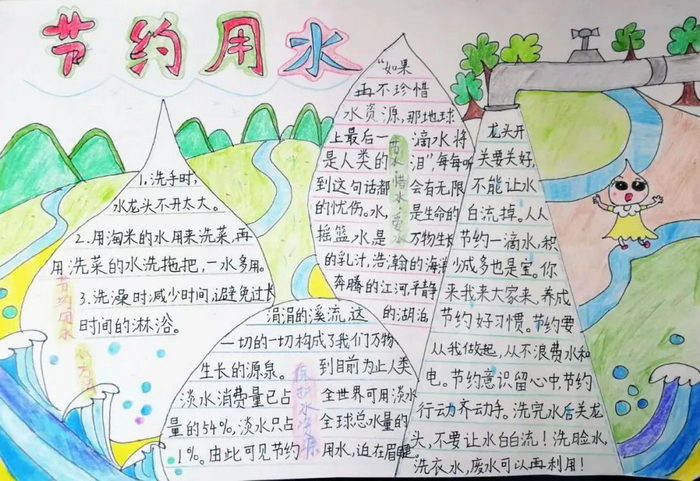 节约用水
1.洗手时,
水龙头不开太大。
2.用淘米的水用来洗菜,再
用洗菜的水洗拖把,一水多用。
3.洗澡时减少时间,避免过长
时间的淋浴。
节约用水
"如果
再不珍惜
水资源,那地球
上最后一滴水将
是人类的泪",每每听
到这句话都会有无限
的忧伤。水,是生命的
摇篮水是万物生长
的乳汁,浩瀚的海洋
奔腾的江河平静
的湖泊
节水惜水爱水
涓涓的溪流,这
一切的一切构成了我们万物
生长的源泉。到目前为止人类
淡水消费量已占全世界可用淡水
量的54%,淡水只占全球总水量的
1%。由此可见节约用水,迫在眉睫。
保护水资源
龙头开
关要关好,
不能让水
白流掉。人人
节约一滴水,积
少成多也是宝。你
来我来大家来,养成
节约好习惯。节约要
从我做起,从不浪费水和
电。节约意识留心中,节约
行动齐动手。洗完水后关龙
头,不要让水白流!洗脸水,
洗衣水,废水可以再利用!